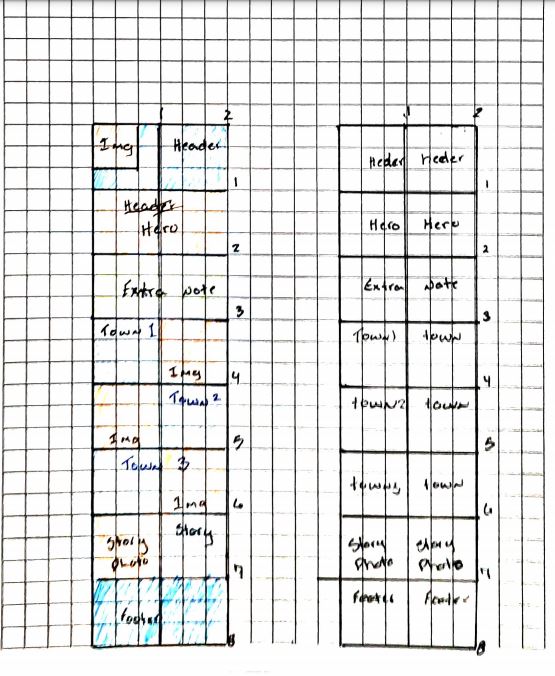 1 2
Img Header
1
Header
Hero
2
Extra Note
3
Town 1
Img 4
Town 2
Img 5
Town 3
Img 6
Story
Story
Photo
7
Footer
8
1 2
Heder heder
1
Hero Hero
2
Extra Note
3
Town1 town
4
town2 town
5
town3 town
6
Story Story
Photo Photo
7
Footer Footer
8